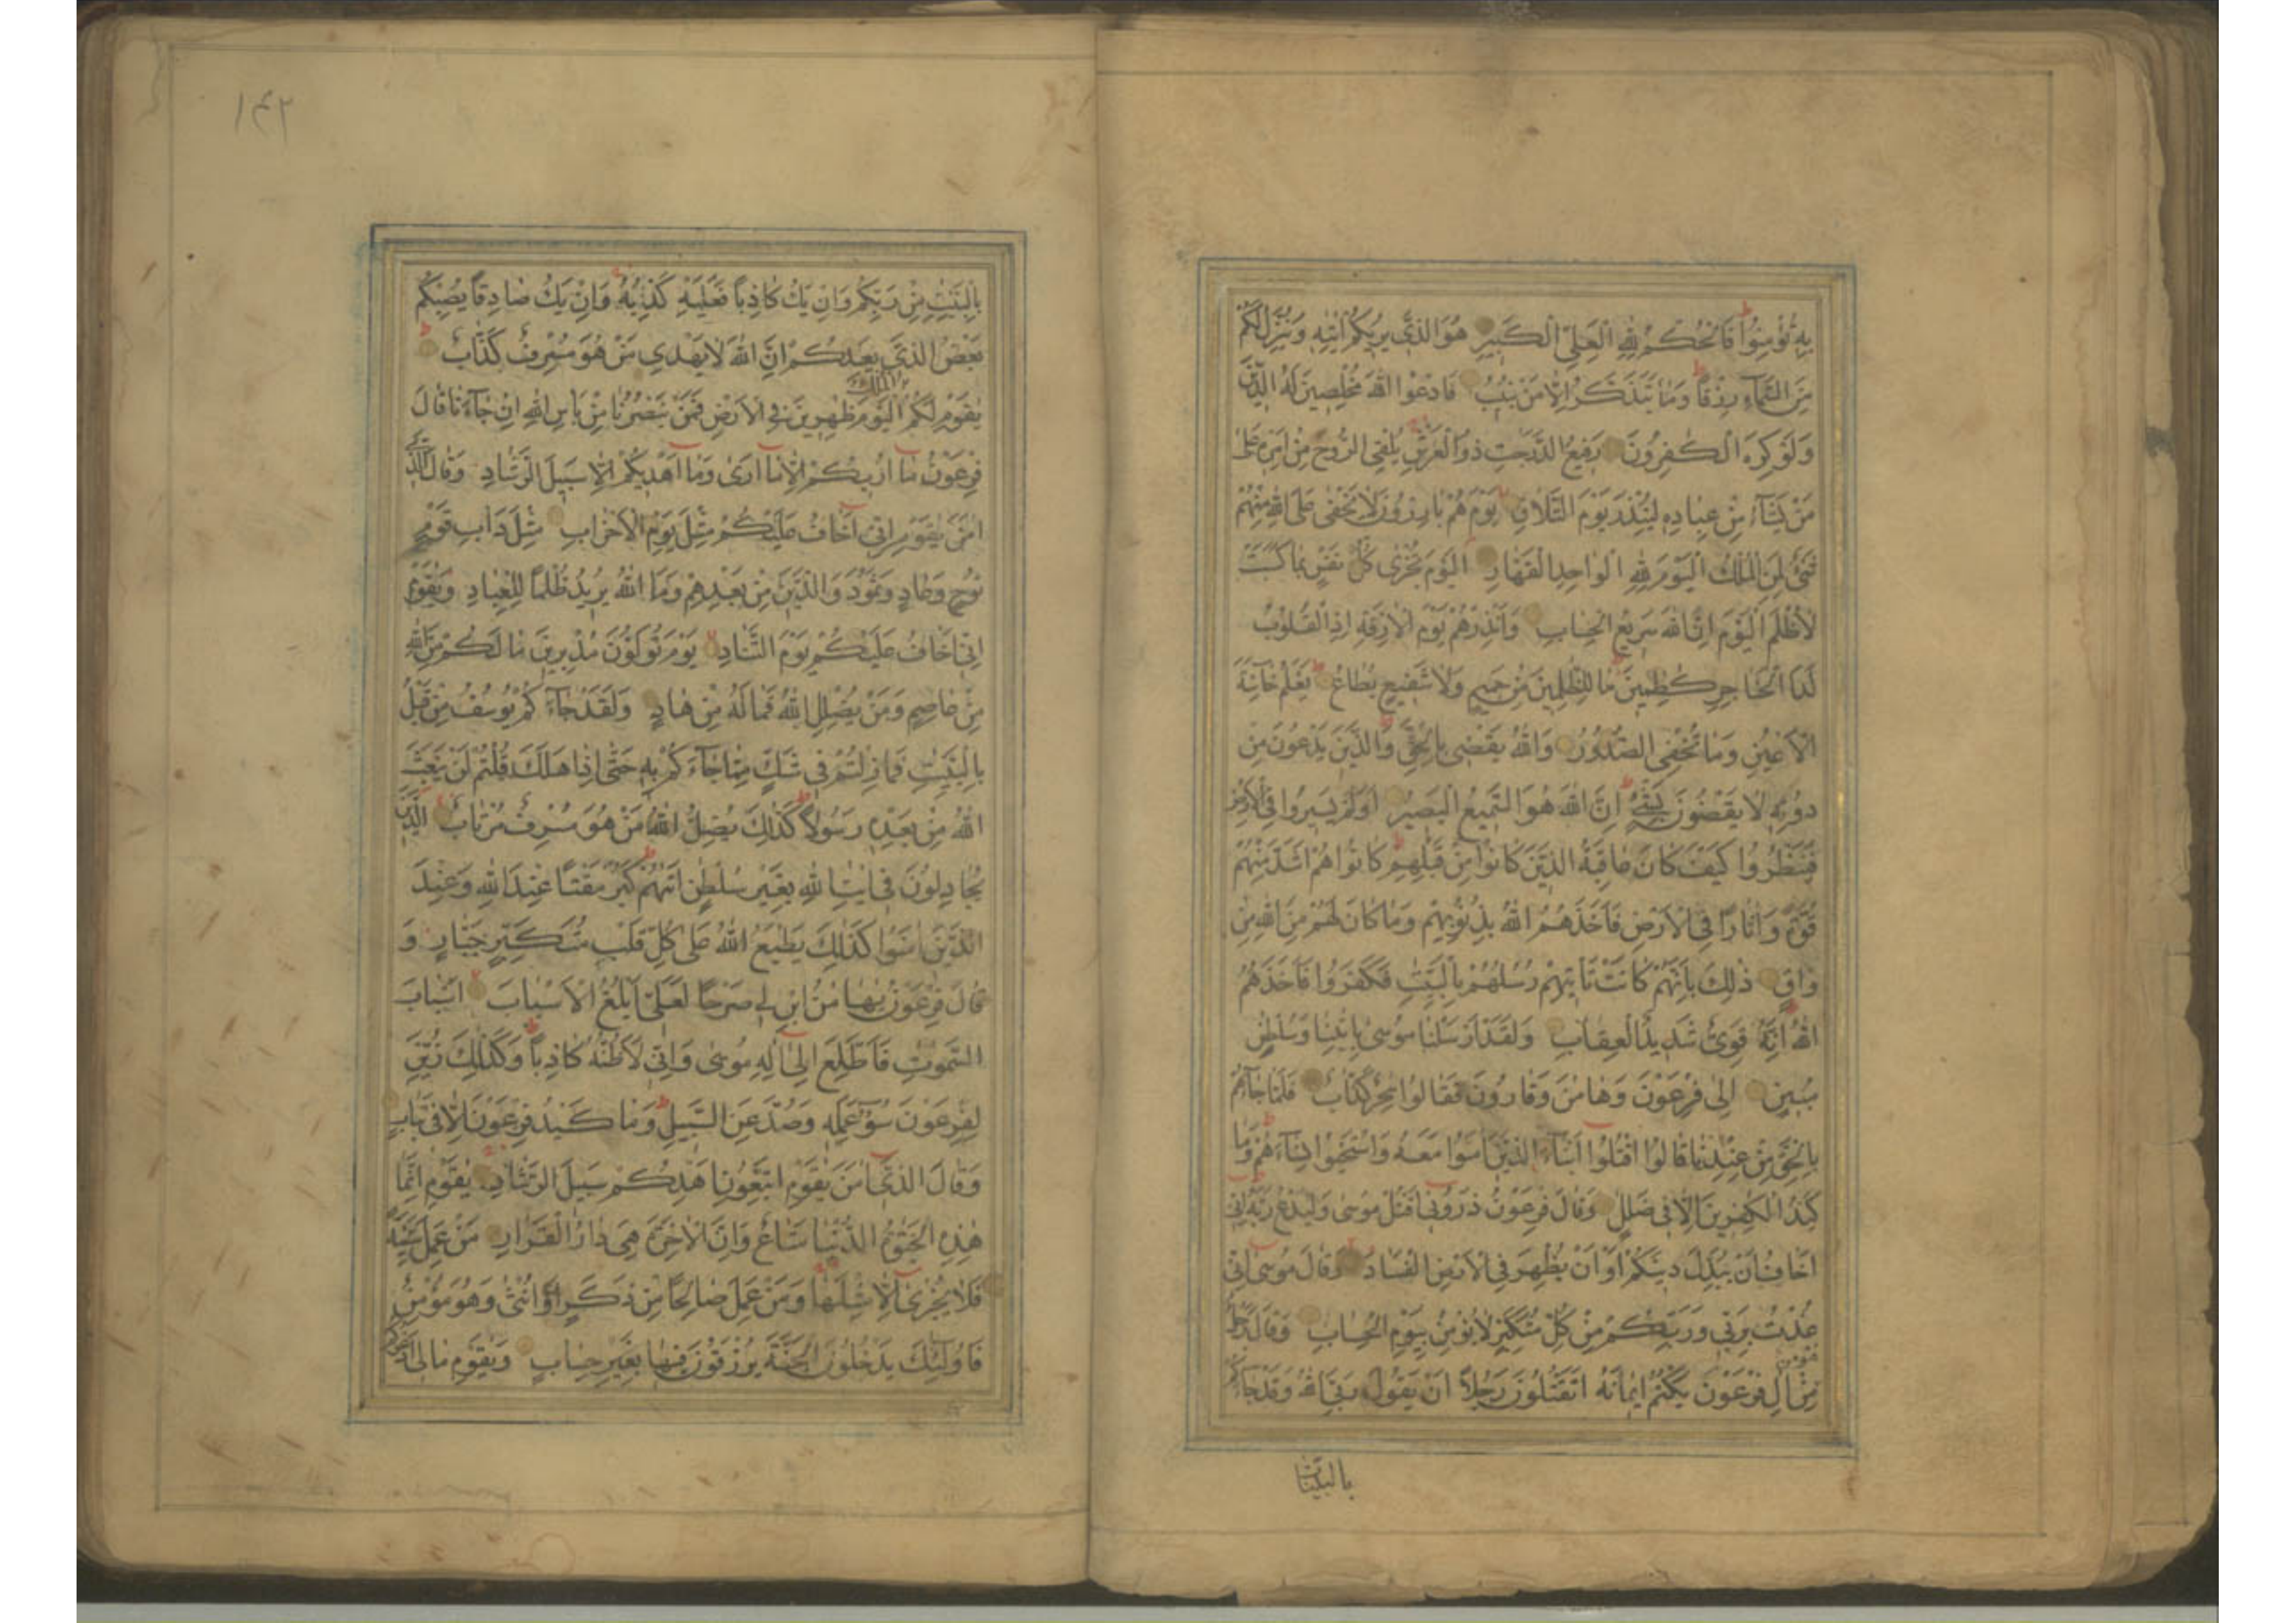 بِهِ تُؤْمِنُوا فَالْحُكْمُ لِلّهِ الْعَلِيِّ الْكَبِيرِ هُوَ الَّذِي يُرِيكُمْ ايتِهِ وَيُنَزِّلُ لَكُمْ
مِنَ السَّمَاءِ رِزْقًا وَمَا يَتَذَكَّرُ اِلَّا مَنْ يُنِيبُ فَادْعُوا اللهَ مُخْلِصِينَ لَهُ الدِّينَ
وَلَوْ كَرِهَ الْكفِرُونَ رَفِيعُ الدَّرَجتِ ذُو الْعَرْشِ يُلْقِي الرُّوحَ مِنْ اَمْرِهِ عَلى
مَنْ يَشَاءُ مِنْ عِبَادِهِ لِيُنْذِرَ يَوْمَ التَّلَاقِ يَوْمَ هُمْ بَارِزُونَ لَا يَخْفى عَلَى اللهِ مِنْهُمْ
شَيْءٌ لِمَنِ الْمُلْكُ الْيَوْمَ لِلّهِ الْوَاحِدِ الْقَهَّارِ اَلْيَوْمَ تُجْزى كُلُّ نَفْسٍ بِمَا كَسَبَتْ
لَا ظُلْمَ الْيَوْمَ اِنَّ اللهَ سَرِيعُ الْحِسَابِ وَاَنْذِرْهُمْ يَوْمَ الْازِفَةِ اِذِ الْقُلُوبُ
لَدَا الْحَنَاجِرِ كظِمِينَ مَا لِلظّلِمِينَ مِنْ حَمِيمٍ وَلَا شَفِيعٍ يُطَاعُ يَعْلَمُ خَائِنَةَ
الْاَعْيُنِ وَمَا تُخْفِي الصُّدُورُ وَاللهُ يَقْضِي بِالْحَقِّ وَالَّذِينَ يَدْعُونَ مِنْ
دُونِهِ لَا يَقْضُونَ بِشَيْءٍ اِنَّ اللهَ هُوَ السَّمِيعُ الْبَصِيرُ اَوَلَمْ يَسِيرُوا فِي الْاَرْضِ
فَيَنْظُرُوا كَيْفَ كَانَ عَاقِبَةُ الَّذِينَ كَانُوا مِنْ قَبْلِهِمْ كَانُوا هُمْ اَشَدَّ مِنْهُمْ
قُوَّةً وَاثَارًا فِي الْاَرْضِ فَاَخَذَهُمُ اللهُ بِذُنُوبِهِمْ وَمَا كَانَ لَهُمْ مِنَ اللهِ مِنْ
وَاقٍ ذلِكَ بِاَنَّهُمْ كَانَتْ تَاْتِيهِمْ رُسُلُهُمْ بِالْبَيِّنتِ فَكَفَرُوا فَاَخَذَهُمُ
اللهُ اِنَّهُ قَوِيٌّ شَدِيدُ الْعِقَابِ وَلَقَدْ اَرْسَلْنَا مُوسى بِايتِنَا وَسُلْطنٍ
مُبِينٍ اِلى فِرْعَوْنَ وَهَامنَ وَقَارُونَ فَقَالُوا سحِرٌ كَذَّابٌ فَلَمَّا جَاءَهُمْ
بِالْحَقِّ مِنْ عِنْدِنَا قَالُوا اقْتُلُوا اَبْنَاءَ الَّذِينَ امَنُوا مَعَهُ وَاسْتَحْيُوا نِسَاءَهُمْ وَمَا
كَيْدُ الْكفِرِينَ اِلَّا فِي ضَللٍ وَقَالَ فِرْعَوْنُ ذَرُونِي اَقْتُلْ مُوسى وَلْيَدْعُ رَبَّهُ اِنِّي
اَخَافُ اَنْ يُبَدِّلَ دِينَكُمْ اَوْ اَنْ يُظْهِرَ فِي الْاَرْضِ الْفَسَادَ وَقَالَ مُوسى اِنِّي
عُذْتُ بِرَبِّي وَرَبِّكُمْ مِنْ كُلِّ مُتَكَبِّرٍ لَا يُؤْمِنُ بِيَوْمِ الْحِسَابِ وَقَالَ رَجُلٌ
مُؤْمِنٌ
مِنْ الِ فِرْعَوْنَ يَكْتُمُ اِيمَانَهُ اَتَقْتُلُونَ رَجُلًا اَنْ يَقُولَ رَبِّيَ اللهُ وَقَدْ جَاءَكُمْ
بالبینات
۱۴۲
بِالْبَيِّنتِ مِنْ رَبِّكُمْ وَاِنْ يَكُ كَاذِبًا فَعَلَيْهِ كَذِبُهُ وَاِنْ يَكُ صَادِقًا يُصِبْكُمْ
بَعْضُ الَّذِي يَعِدُكُمْ اِنَّ اللهَ لَا يَهْدِي مَنْ هُوَ مُسْرِفٌ كَذَّابٌ
الْمُلْكُ
يقَوْمِ لَكُمُ الْيَوْمَ ظهِرِينَ فِي الْاَرْضِ فَمَنْ يَنْصُرُنَا مِنْ بَاْسِ اللهِ اِنْ جَاءَنَا قَالَ
فِرْعَوْنُ مَا اُرِيكُمْ اِلَّا مَا اَرى وَمَا اَهْدِيكُمْ اِلَّا سَبِيلَ الرَّشَادِ وَقَالَ الَّذِي
امَنَ يقَوْمِ اِنِّي اَخَافُ عَلَيْكُمْ مِثْلَ يَوْمِ الْاَحْزَابِ مِثْلَ دَاْبِ قَوْمِ
نُوحٍ وَعَادٍ وَثَمُودَ وَالَّذِينَ مِنْ بَعْدِهِمْ وَمَا اللهُ يُرِيدُ ظُلْمًا لِلْعِبَادِ وَيقَوْمِ
اِنِّي اَخَافُ عَلَيْكُمْ يَوْمَ التَّنَادِ يَوْمَ تُوَلُّونَ مُدْبِرِينَ مَا لَكُمْ مِنَ اللهِ
مِنْ عَاصِمٍ وَمَنْ يُضْلِلِ اللهُ فَمَا لَهُ مِنْ هَادٍ وَلَقَدْ جَاءَكُمْ يُوسُفُ مِنْ قَبْلُ
بِالْبَيِّنتِ فَمَا زِلْتُمْ فِي شَكٍّ مِمَّا جَاءَكُمْ بِهِ حَتّى اِذَا هَلَكَ قُلْتُمْ لَنْ يَبْعَثَ
اللهُ مِنْ بَعْدِهِ رَسُولًا كَذلِكَ يُضِلُّ اللهُ مَنْ هُوَ مُسْرِفٌ مُرْتَابٌ الَّذِينَ
يُجَادِلُونَ فِي ايتِ اللهِ بِغَيْرِ سُلْطنٍ اَتهُمْ كَبُرَ مَقْتًا عِنْدَ اللهِ وَعِنْدَ
الَّذِينَ امَنُوا كَذلِكَ يَطْبَعُ اللهُ عَلى كُلِّ قَلْبِ مُتَكَبِّرٍ جَبَّارٍ وَ
قَالَ فِرْعَوْنُ يهَامنُ ابْنِ لِي صَرْحًا لَعَلِّي اَبْلُغُ الْاَسْبَابَ اَسْبَابَ
السَّموتِ فَاَطَّلِعَ اِلى اِلهِ مُوسى وَاِنِّي لَاَظُنُّهُ كَاذِبًا وَكَذلِكَ زُيِّنَ
لِفِرْعَوْنَ سُوءُ عَمَلِهِ وَصُدَّ عَنِ السَّبِيلِ وَمَا كَيْدُ فِرْعَوْنَ اِلَّا فِي تَبَابٍ
وَقَالَ الَّذِي امَنَ يقَوْمِ اتَّبِعُونِ اَهْدِكُمْ سَبِيلَ الرَّشَادِ يقَوْمِ اِنَّمَا
هذِهِ الْحَيوةُ الدُّنْيَا مَتَاعٌ وَاِنَّ الْاخِرَةَ هِيَ دَارُ الْقَرَارِ مَنْ عَمِلَ سَيِّئَةً
فَلَا يُجْزى اِلَّا مِثْلَهَا وَمَنْ عَمِلَ صَالِحًا مِنْ ذَكَرٍ اَوْ اُنْثى وَهُوَ مُؤْمِنٌ
فَاُولئِكَ يَدْخُلُونَ الْجَنَّةَ يُرْزَقُونَ فِيهَا بِغَيْرِ حِسَابٍ وَيقَوْمِ مَا لِي اَدْعُوكُمْ